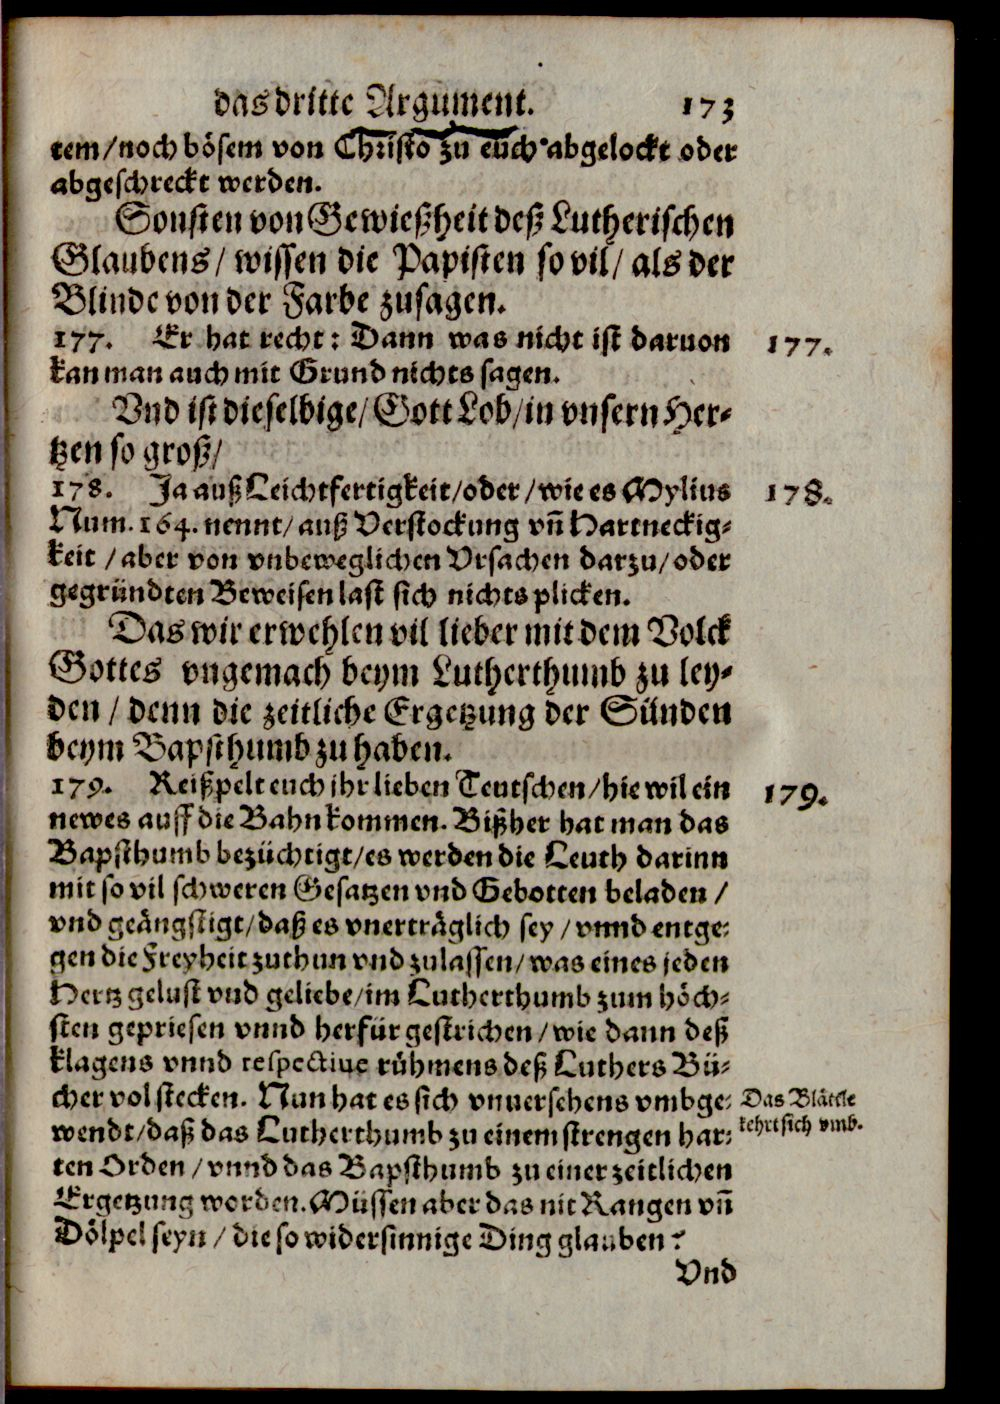 das dritte Argument. 173
tem/noch bösem von Christo zu euch abgelockt oder
abgeschreckt werden.
Sonsten von Gewießheit deß Lutherischen
Glaubens/ wissen die Papisten so vil/ als der
Blinde von der Farbe zusagen.
177. Er hat recht: Dann was nicht ist daruon 177.
kan man auch mit Grund nichts sagen.
Vnd ist dieselbige/ Gott Lob/ in vnsern Her-
tzen so groß/
178. Ja auß Leichtfertigkeit/oder/wie es Mylius 178.
Num. 164. nennt/ auß Verstockung vñ Hartneckig-
keit /aber von vnbeweglichen Vrsachen darzu/oder
gegründten Beweisen last sich nichts plicken.
Das wir erwehlen vil lieber mit dem Volck
Gottes vngemach beym Lutherthumb zu ley-
den / denn die zeitliche Ergetzung der Sünden
beym Bapsthumb zu haben.
179. Reißpelt euch ihr lieben Teutschen/hie wil ein 179.
newes auff die Bahn kommen. Bißher hat man das
Bapsthumb bezüchtigt/es werden die Leuth darinn
mit so vil schweren Gesatzen vnd Gebotten beladen /
vnd geängstigt/daß es vnerträglich sey / vnnd entge-
gen die Freyheit zuthun vnd zulassen/was eines jeden
Hertz gelust vnd geliebe/im Lutherthumb zum höch-
sten gepriesen vnnd herfür gestrichen /wie dann deß
klagens vnnd respectiue rühmens deß Luthers Bü-
cher vol stecken. Nun hat es sich vnuersehens vmbge- Das Blättle
wendt/daß das Lutherthumb zu einem strengen har- kehrt sich vmb.
ten Orden /vnnd das Bapsthumb zu einer zeitlichen
Ergetzung worden. Müssen aber das nit Rangen vñ
Dölpel seyn / die so widersinnige Ding glauben?
Vnd